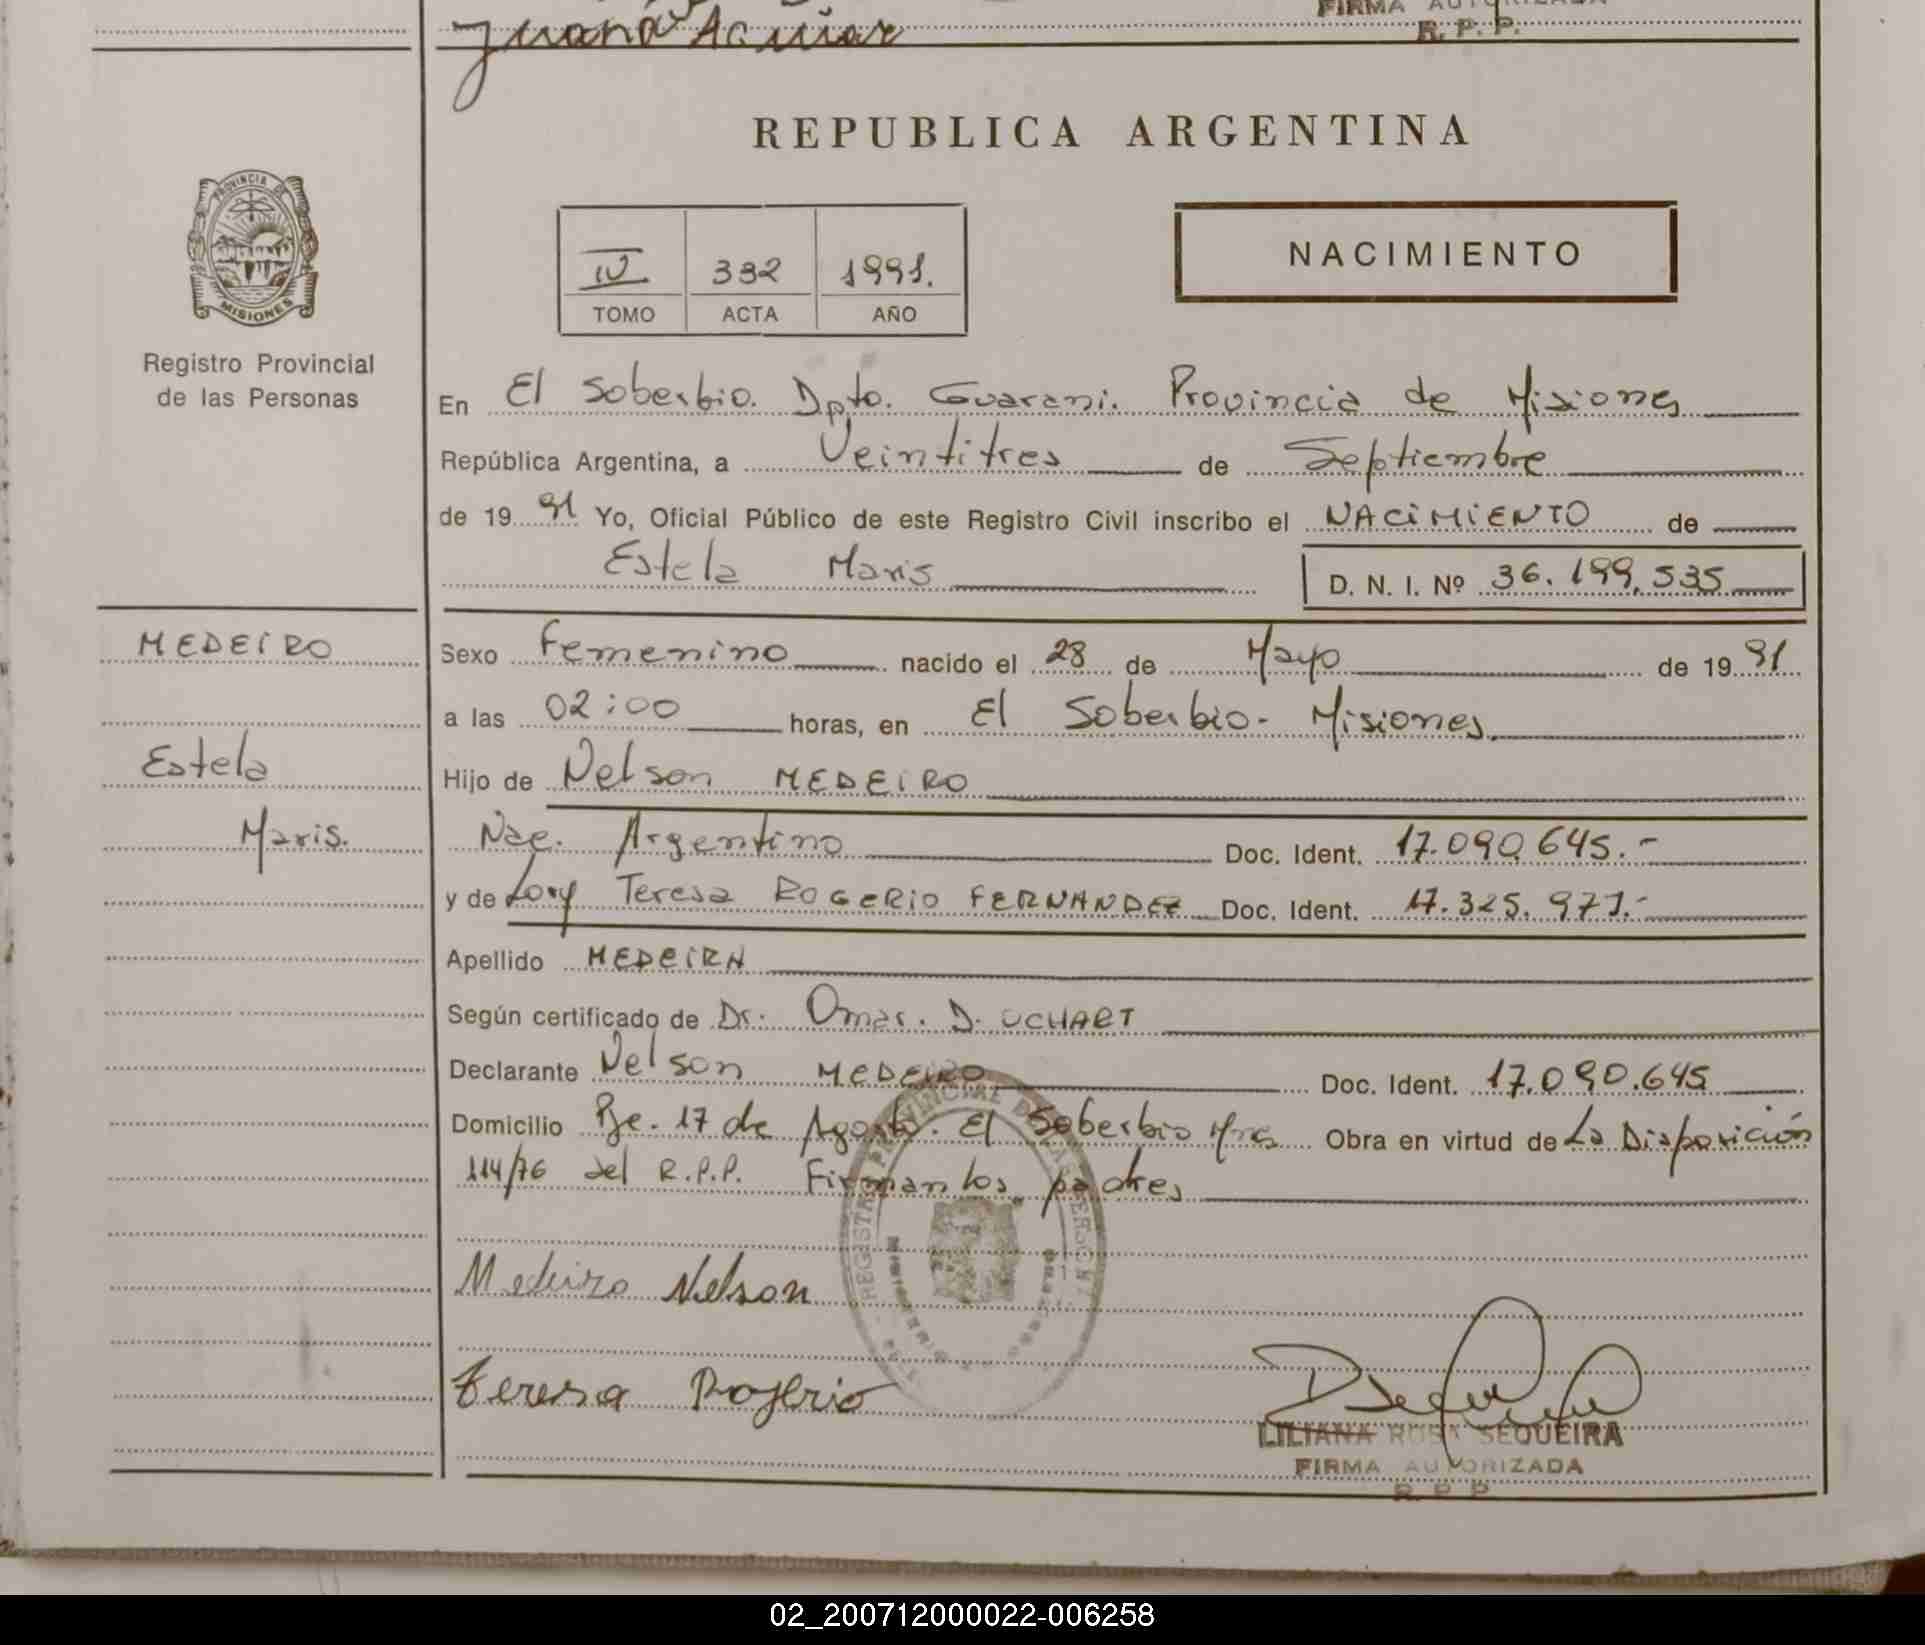 Juana Acuñar
FIRMA AUTORIZADA
R. P. P.
REPUBLICA ARGENTINA
PROVINCIA DE
MISIONES
Registro Provincial
de las Personas
IV 332 1991.
TOMO ACTA AÑO
NACIMIENTO
En El Soberbio. Dpto. Guarani. Provincia de Misiones
República Argentina, a Veintitres de Septiembre
de 19 91 Yo, Oficial Público de este Registro Civil inscribo el NACIMIENTO de
Estela Maris D. N. I. Nº 36.199.535
MEDEIRO
Estela
Maris.
Sexo Femenino nacido el 28 de Mayo de 19 91
a las 02:00 horas, en El Soberbio- Misiones.
Hijo de Nelson MEDEIRO
Nac. Argentino Doc. Ident. 17.090.645.-
y de Lory Teresa ROGERIO FERNANDEZ Doc. Ident. 17.325.971.-
Apellido MEDEIRA
Según certificado de Dr. Omar. D. UCHART
Declarante Nelson MEDEIRO Doc. Ident. 17.090.645
Domicilio Bje. 17 de Agosto. El Soberbio Mnes Obra en virtud de La Disposición
114/76 del R.P.P. Firman los padres
REGISTRO PROVINCIAL DE LAS PERSONAS
Medeiro Nelson
Teresa Rogerio
LILIANA ROSA SEQUEIRA
FIRMA AUTORIZADA
R. P. P.
02_200712000022-006258